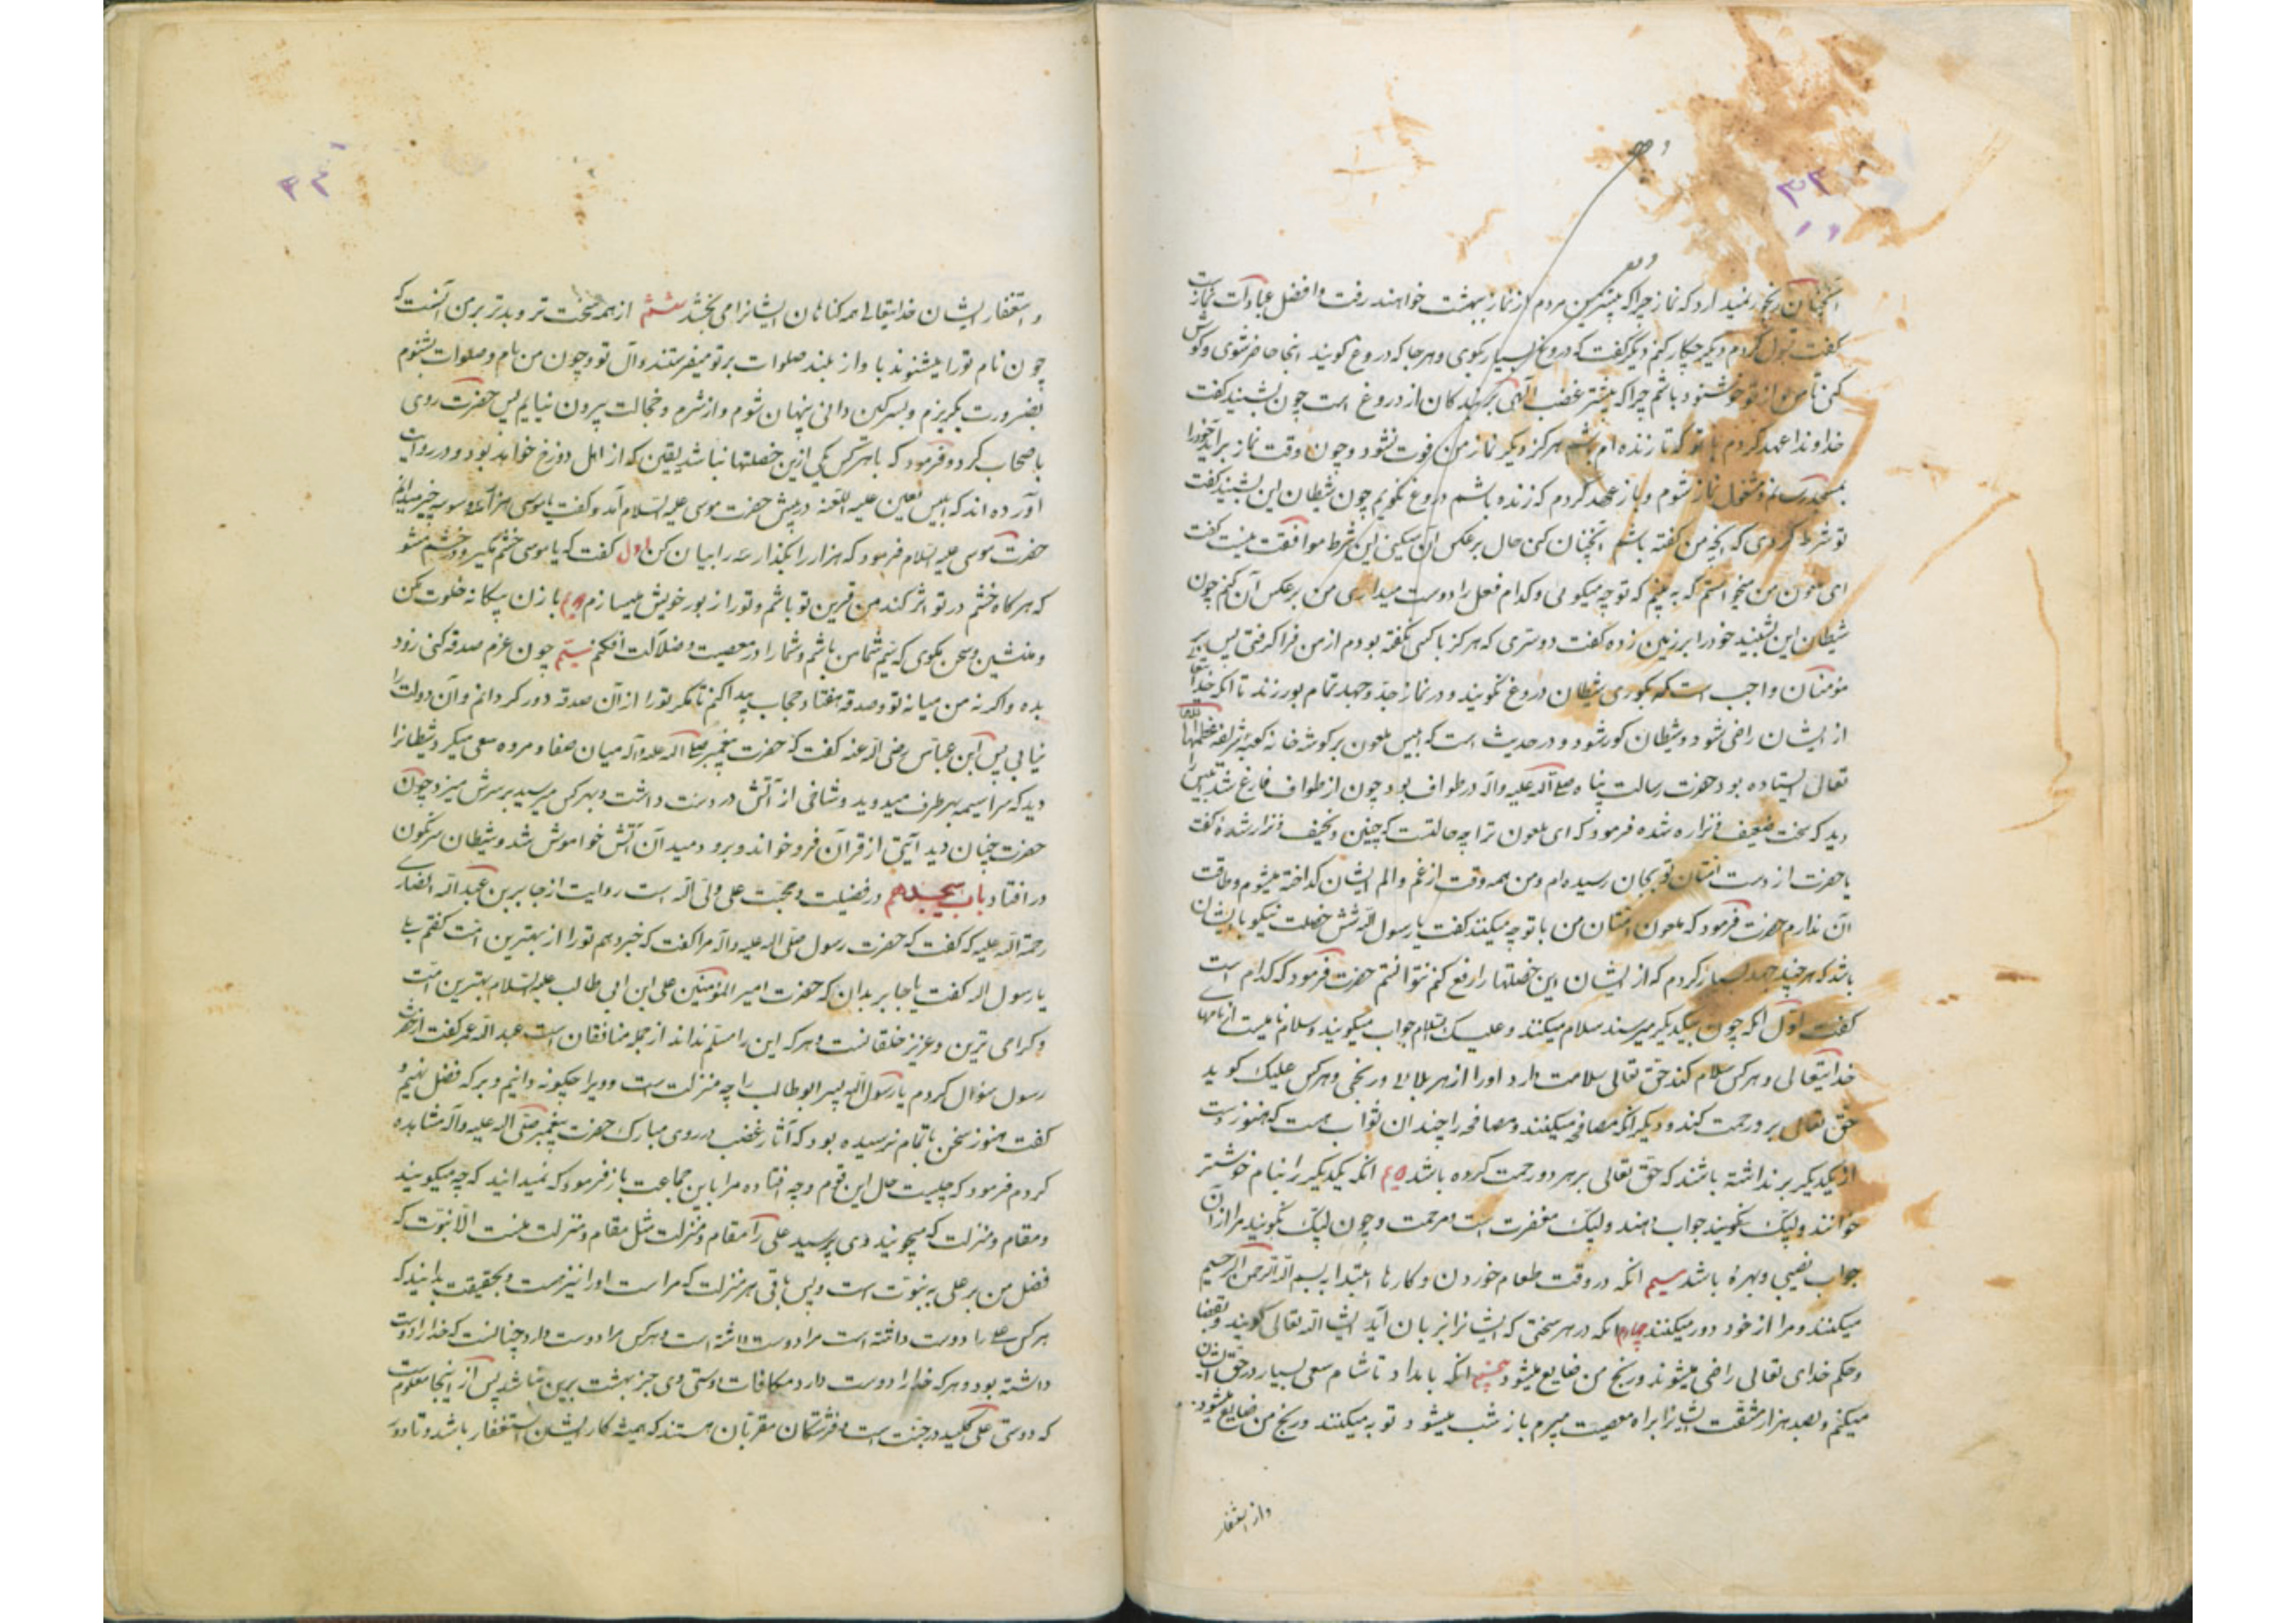 ۳۳
آنچنان رنجور نمیدارد که نماز چراکه بیشترین مردم از نماز ببهشت خواهند رفت و افضل عبادات نمازست
گفت قبول کردم دیگر چکار کنم دیگر گفت که دروغ بسیار بکوی و هرجا که دروغ کویند انجا حاضر شوی و کوش
کنی تا من از تو خوشنود باشم چراکه بیشتر غضب الهی بر بندکان از دروغ است چون بشنید کفت
خداوندا عهد کردم با تو که تا زنده ام باشم هرکز دیکر نماز من فوت نشود و چون وقت نماز براید خودرا
بمسجد رسانم و مشغول نماز شوم و باز عهد کردم که زنده باشم دروغ نکویم چون شیطان این بشنید کفت
تو شرط کردی که انچه من کفته باشم آنچنان کنی حال برعکس آن میکنی این شرط موافقت نیست کفت
ای ملعون من میخواستم که به بینم که تو چه میکوئی و کدام فعل را دوست میداری من برعکس آن کنم چون
شیطان این بشنید خودرا بر زمین زده کفت دوستری که هرکز با کسی نکفته بودم از من فرا کرفتی پس بر
مؤمنان واجب است که بکوری شیطان دروغ نکویند و در نماز جدّ و جهد تمام بورزند تا انکه خدایتعالی
از ایشان راضی شود و شیطان کور شود و در حدیث است که ابلیس ملعون بر کوشه خانه کعبه شریفه عظمها الله
تعالی ایستاده بود حضرت رسالت پناه صلی الله علیه وآله در طواف بود چون از طواف فارغ شد ابلیس را
دید که سخت ضعیف و نزار شده فرمود که ای ملعون ترا چه حالتست که چنین و نحیف و نزار شدهٔ کفت
یا حضرت از دست امتان تو بجان رسیده ام و من همه وقت از غم و الم ایشان کداخته میشوم و طاقت
آن ندارم حضرت فرمود که ملعون امتان من با تو چه میکنند کفت یا رسول الله شش خصلت نیکو با ایشان
باشد که هرچند جهد بسیار کردم که از ایشان این خصلتها را رفع کنم نتوانستم حضرت فرمود که کدام است
کفت اوّل انکه چون بیکدیکر میرسند سلام میکنند و علیک السلام جواب میکویند و سلام نامیست از نامهای
خدایتعالی و هرکس سلام کند حق تعالی سلامت دارد اورا از هر بلائی و رنجی و هرکس علیک کوید
حق تعالی برو رحمت کند و دیکر انکه مصافحه میکنند و مصافحه را چندان ثواب هست که هنوز دست
از یکدیکر برنداشته باشند که حق تعالی بر هر دو رحمت کرده باشد انکه یکدیکر را بنام خوشتر
خوانند و لبّیک بکویند جواب دهند و لبیک مغفرت است و مرحمت و چون لبّیک بکویند مرا از آن
جواب نصیبی و بهرهٔ باشد سیم انکه در وقت طعام خوردن و کارها ابتدا به بسم الله الرحمن الرحیم
میکنند و مرا از خود دور میکنند چهارم انکه در هر سخنی که ایشانرا بر زبان آید انشا الله تعالی کویند و بقضا
و حکم خدای تعالی راضی میشوند و رنج من ضایع میشود پنجم انکه بامداد تا شام سعی بسیار در حق ایشان
میکنم و بصد هزار مشقت ایشانرا براه معصیت میبرم باز شب میشود توبه میکنند و رنج من ضایع میشود
و از استغفار
و استغفار ایشان خدایتعالی همه کناهان ایشانرا می بخشد ششم از همه سخت تر و بدتر بر من آنست که
چون نام تو را میشنوند با واز بلند صلوات بر تو میفرستند و آل تو و چون من نام و صلوات بشنوم
بضرورت بکریزم و بسرکین دانی پنهان شوم و از شرم و خجالت بیرون نیایم پس حضرت روی
باصحاب کرد و فرمود که با هرکس یکی ازین خصلتها نباشد یقین که از اهل دوزخ خواهد بود و در روایت
آورده اند که ابلیس لعین علیه اللعنه در پیش حضرت موسی علیه السلام آمد و کفت یا موسی هزار و سه چیز میدانم
حضرت موسی علیه السلام فرمود که هزار را بکذار سه را بیان کن اول کفت که یا موسی خشم مکیر و در خشم مشو
که هرکاه خشم در تو اثر کند من قرین تو باشم و تورا از بور خویش میسازم با زن بیکانه خلوت مکن
و منشین و سخن مکوی که سیم شما من باشم و شمارا در معصیت و ضلالت افکنم سیم چون عزم صدقه کنی زود
بده واکرنه من میانه تو و صدقه هفتاد حجاب پیدا کنم تا مکر تورا از آن صدقه دور کردانم و آن دولت را
نیابی پس ابن عباس رضی الله عنه کفت که حضرت پیغمبر صلی الله علیه وآله میان صفا و مروه سعی میکرد شیطانرا
دید که سراسیمه بهر طرف میدوید و شاخی از آتش در دست داشت و بهرکس میرسید بر سرش میزد چون
حضرت چنان دید آیتی از قرآن فرو خواند و برو دمید آن آتش خواموش شد و شیطان سرنکون
در افتاد باب هیجدهم در فضیلت و محبّت علی ولی الله است روایت از جابر بن عبدالله انصاری
رحمة الله علیه که کفت که حضرت رسول صلی الله علیه وآله مرا کفت که خبر دهم تورا از بهترین امّت کفتم بلی
یا رسول الله کفت یا جابر بدان که حضرت امیر المؤمنین علی ابن ابی طالب علیه السلام بهترین امّت
و کرامی ترین و عزیز خلقانست و هرکه این را مسلّم نداند از جمله منافقان است عبدالله عمر کفت از حضرت
رسول سؤال کردم یا رسول الله پسر ابوطالب را چه منزلت است و ویرا چکونه دانیم و بر که فضل نهیم و
کفت هنوز سخن باتمام نرسیده بود که آثار غضب در روی مبارک حضرت پیغمبر صلی الله علیه وآله مشاهده
کردم فرمود که چیست حال این قوم و چه افتاده مرا با این جماعت باز فرمود که نمیدانید که چه میکویند
و مقام و منزلت که میجویند وی پرسید علی را مقام و منزلت مثل مقام و منزلت منست الّا نبوّت که
فضل من بر علی به نبوّت است و پس باقی هر منزلت که مراست اورا نیز هست و بحقیقت بدانید که
هرکس علی را دوست داشته است مرا دوست داشته است و هرکس مرا دوست دارد چنانست که خدارا دوست
داشته بود و هرکه خدارا دوست دارد مکافات دوستی وی جز بهشت برین نباشد پس از اینجا معلوم است
که دوستی علی کلید در جنّت است و فرشتکان مقرّبان هستند که همیشه کار ایشان استغفار باشد و تا دور